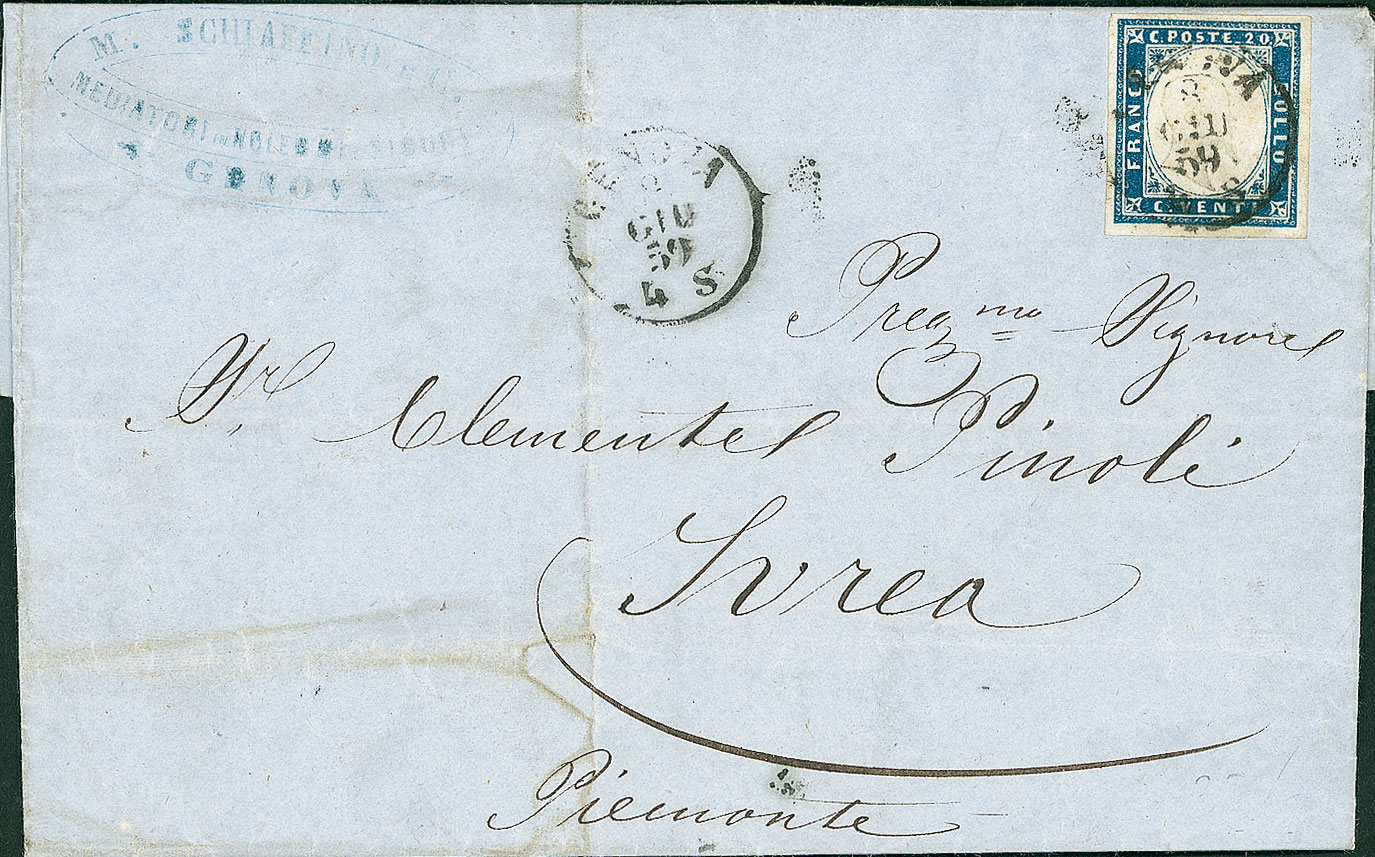 M. SCHIAFFINO & C.
MEDIATORI in NOLEGGI
GENOVA
GENOVA
2
GIU
59
4 S
C. POSTE. 20
FRANCO
BOLLO
C. VENTI
GIU
59
Preg.mo Signore
Sr. Clemente Pinoli
Ivrea
Piemonte